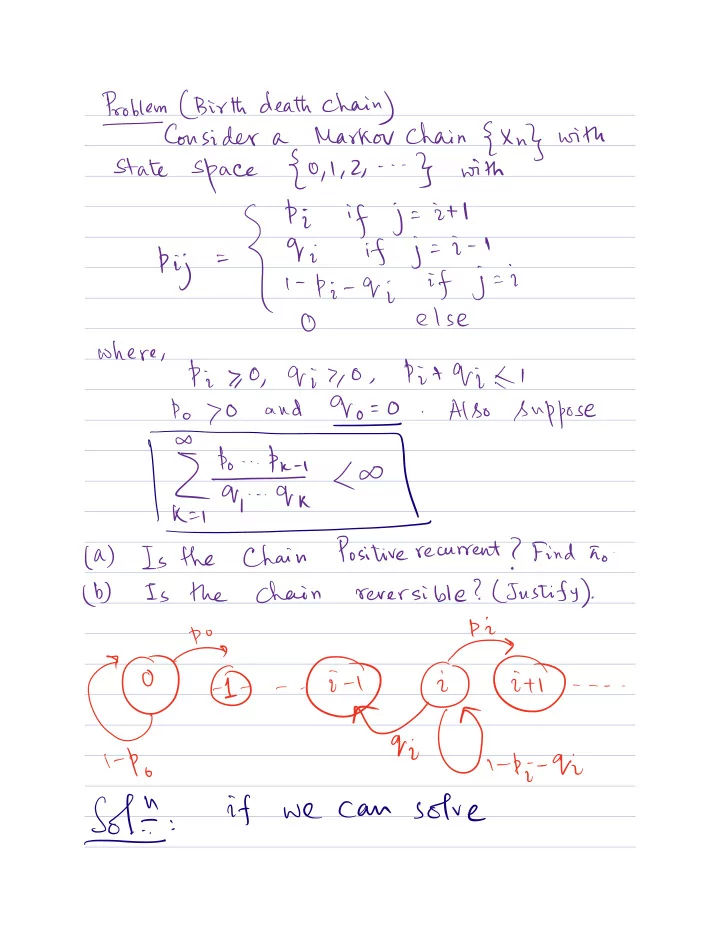 Problem (Birth death chain)
Consider a Markov Chain {Xn} with
state space {0,1,2, ...} with
pij = { pi if j = i+1
qi if j = i-1
1-pi-qi if j = i
0 else
where,
pi ≥ 0, qi ≥ 0, pi + qi ≤ 1
p0 > 0 and q0 = 0. Also suppose
∞
∑ p0 ... pk-1 / q1 ... qk < ∞
K=1
(a) Is the Chain Positive recurrent? Find π0.
(b) Is the chain reversible? (Justify).
p0 pi
0 1 ... i-1 i i+1 ....
qi
1-p0 1-pi-qi
Soln: if we can solve